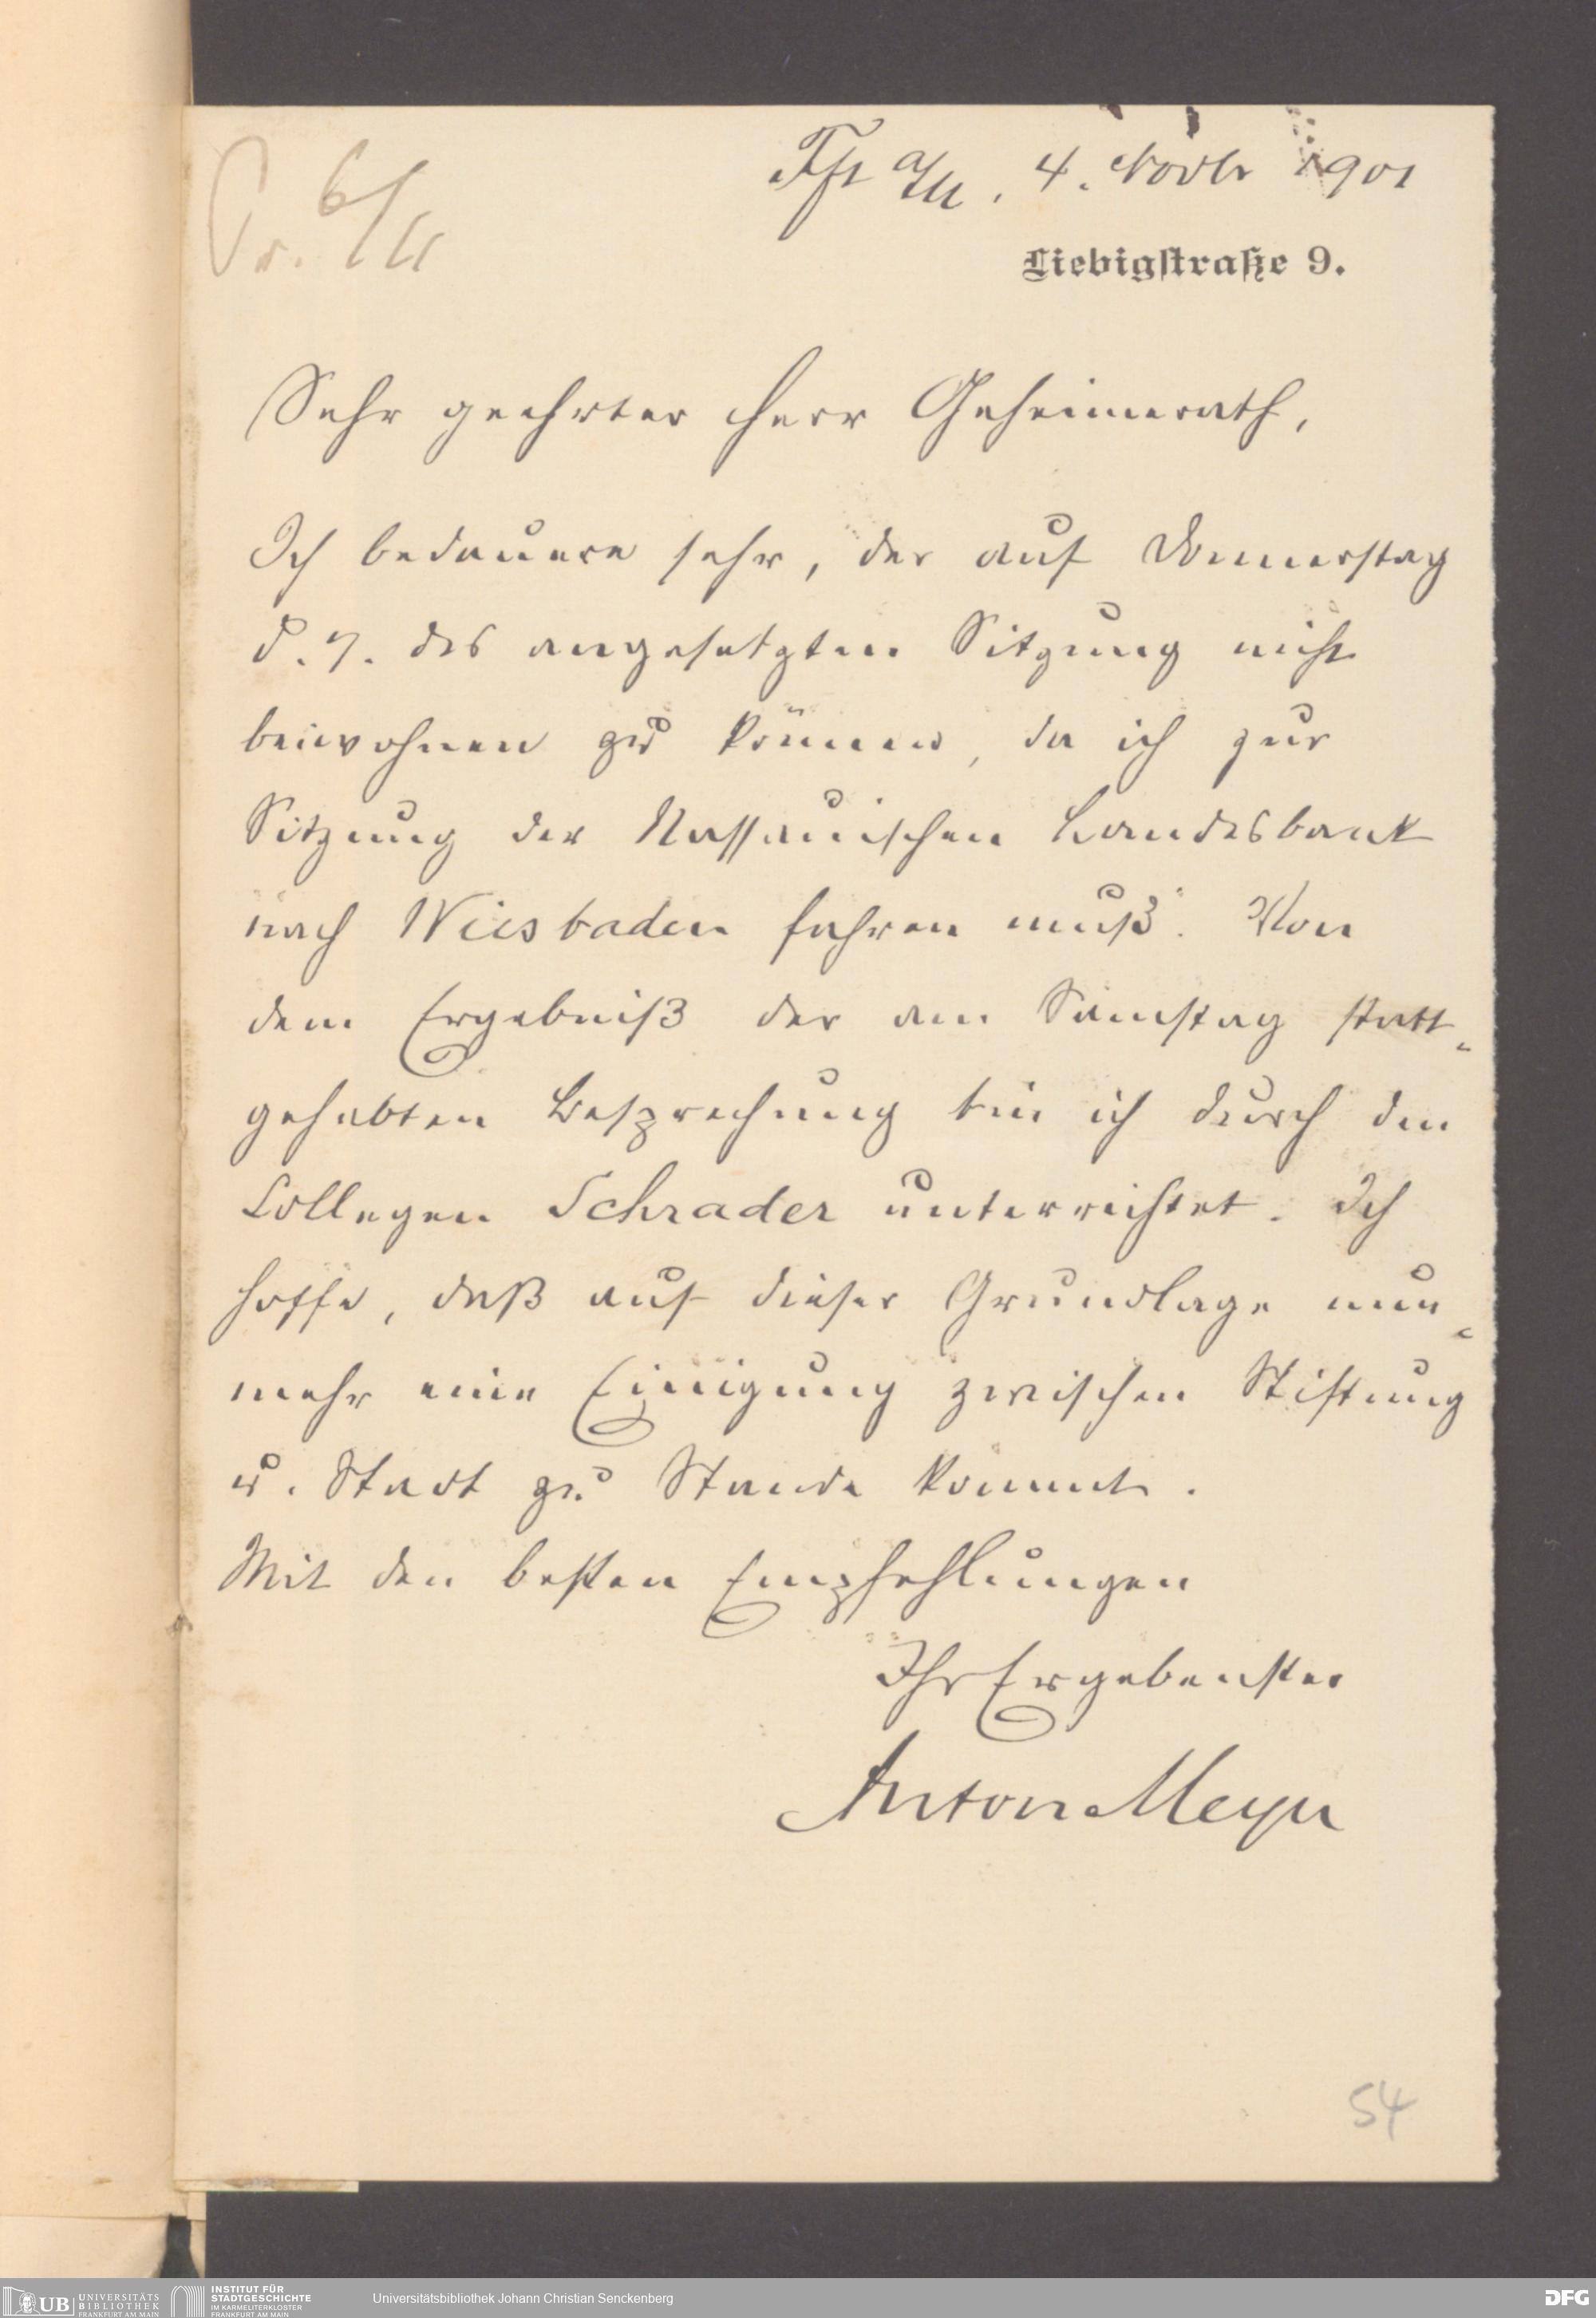 Pr. 6/11
Fft a/M, 4. Novbr 1901
Liebigstraße 9.
Sehr geehrter Herr Geheimerath,
Ich bedauere sehr, der auf Donnerstag
d. 7. ds angesetzten Sitzung nicht
beiwohnen zu können, da ich zur
Sitzung der Nassauischen Landesbank
nach Wiesbaden fahren muß. Von
dem Ergebniß der am Samstag statt-
gehabten Besprechung bin ich durch den
Collegen Schrader unterrichtet. Ich
hoffe, daß auf dieser Grundlage nun-
mehr eine Einigung zwischen Stiftung
u. Stadt zu Stande kommt.
Mit den besten Empfehlungen
Ihr Ergebenster
Anton Meyer
54
UB UNIVERSITÄTS
BIBLIOTHEK
FRANKFURT AM MAIN
INSTITUT FÜR
STADTGESCHICHTE
IM KARMELITERKLOSTER
FRANKFURT AM MAIN
Universitätsbibliothek Johann Christian Senckenberg
DFG